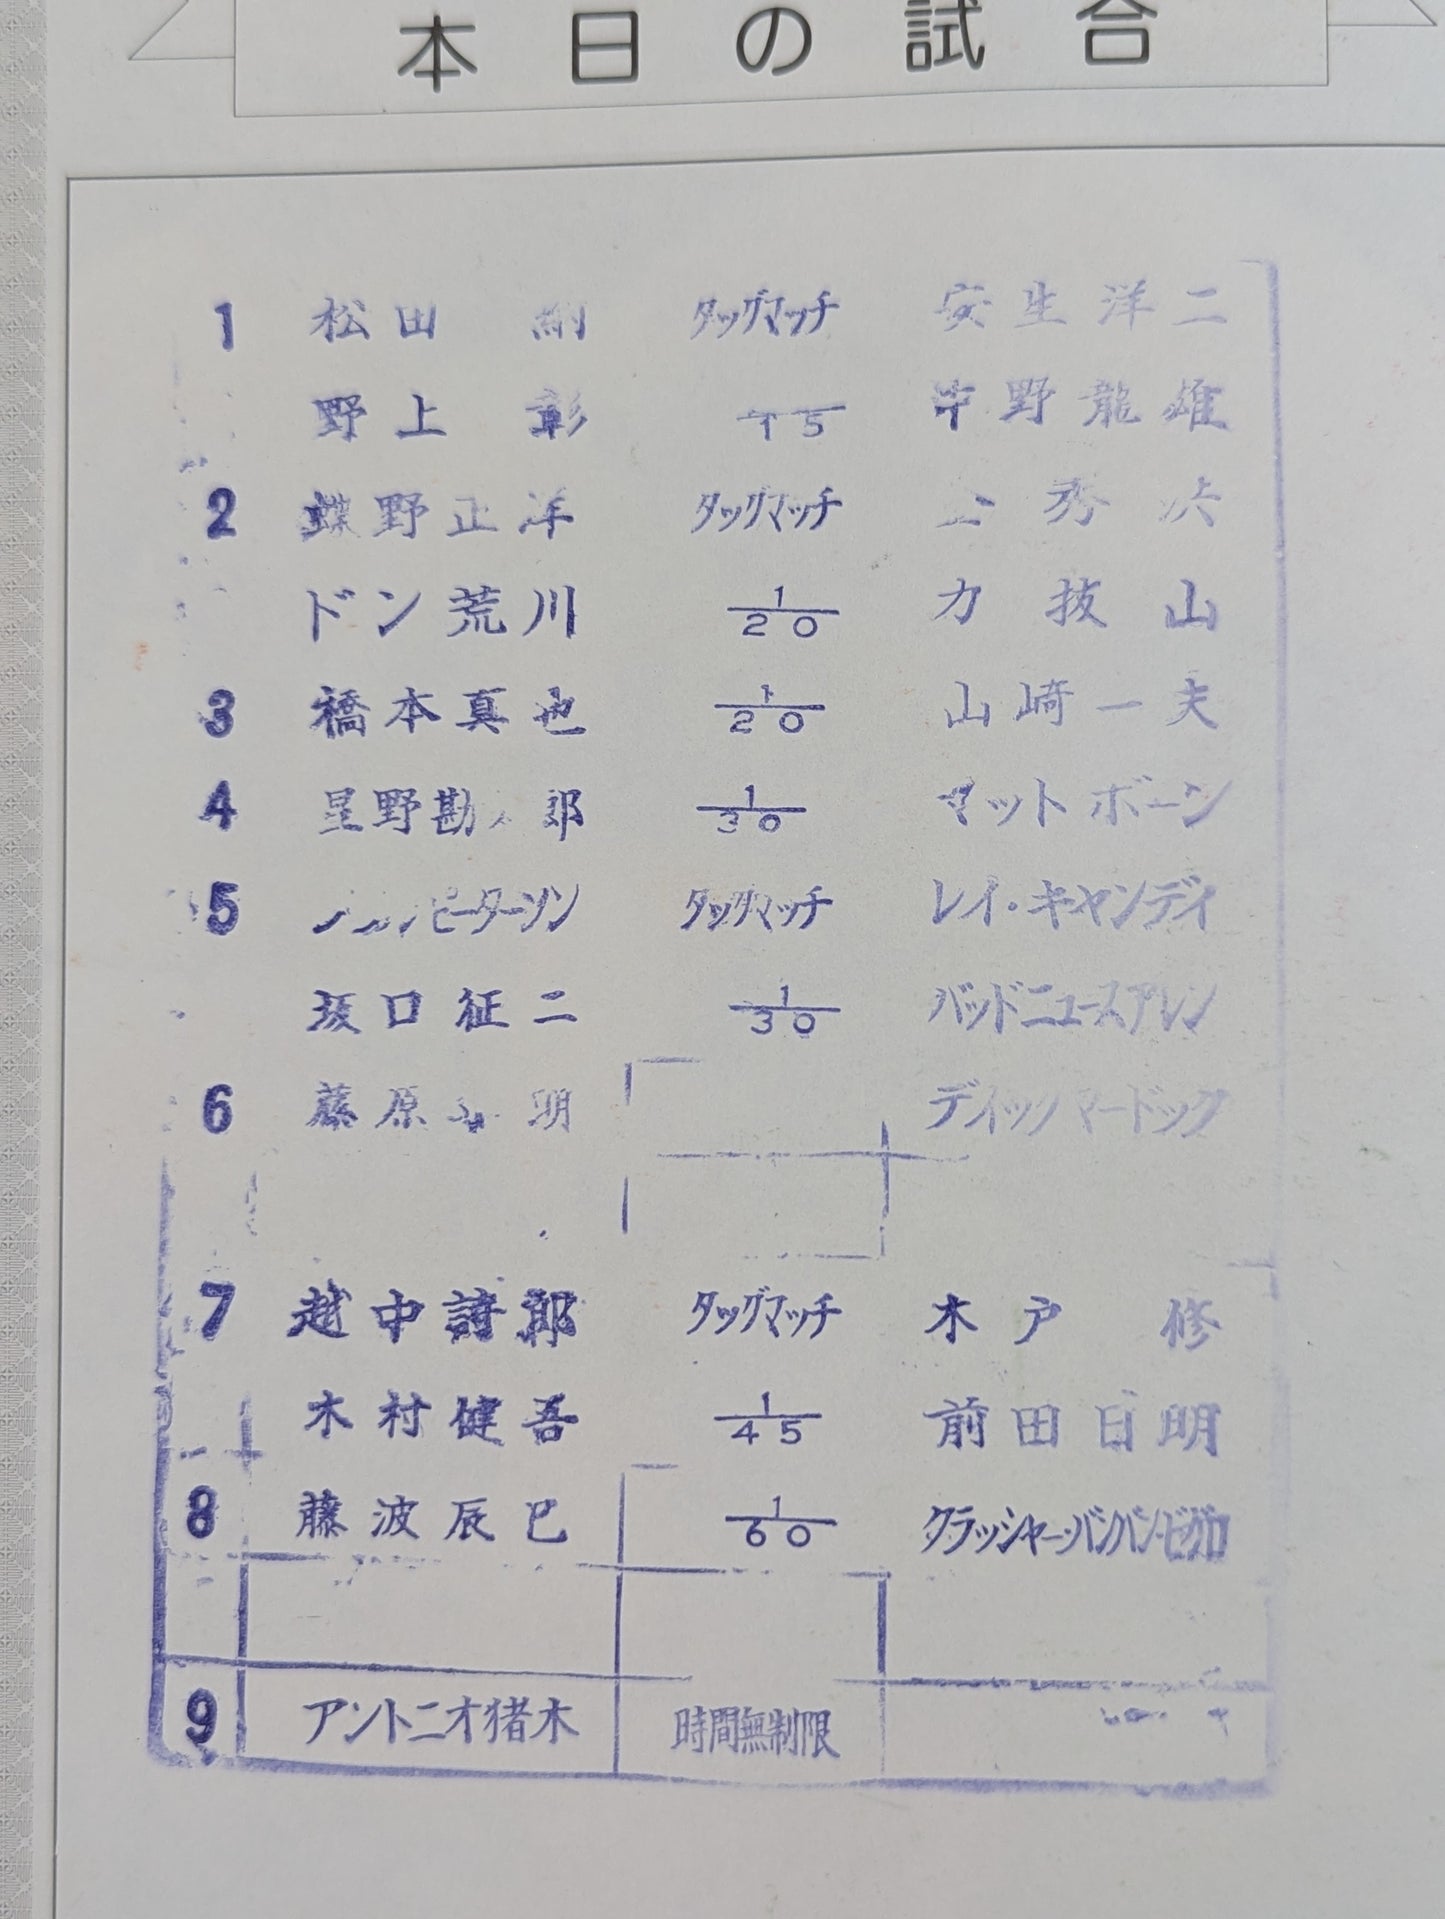 本日の試合
1 松田 納 タッグマッチ 安生洋二
野上 彰 15 中野龍雄
2 蝶野正洋 タッグマッチ 秀
ドン荒川 1/20 力抜山
3 橋本真也 1/20 山崎一夫
4 星野勘 郎 1/30 マットボーン
5 ピーターソン タッグマッチ レイ・キャンディ
坂口征二 1/30 バッドニュースアレン
6 藤原 明 ディックマードック
7 越中詩郎 タッグマッチ 木戸 修
木村健吾 1/45 前田日明
8 藤波辰巳 1/60 クラッシャー・バンバン・ビガロ
9 アントニオ猪木 時間無制限